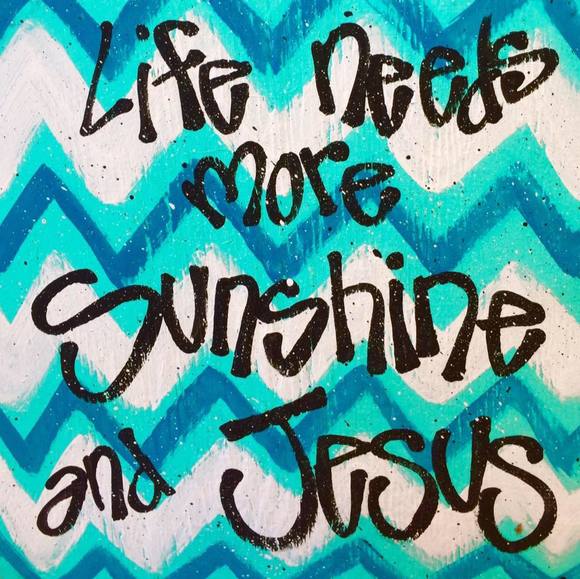 Life needs
more
Sunshine
and Jesus